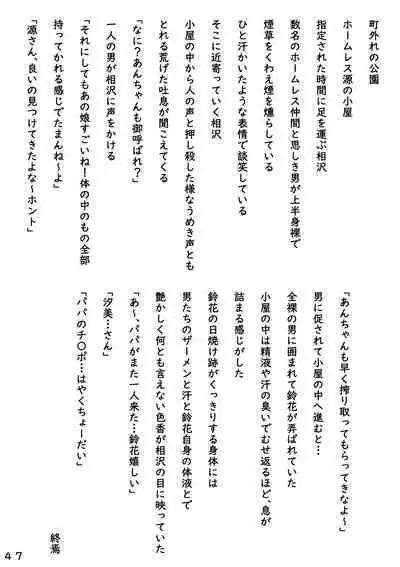 町外れの公園
ホームレス源の小屋
指定された時間に足を運ぶ相沢
数名のホームレス仲間と思しき男が上半身裸で
煙草をくわえ煙を燻らしている
ひと汗かいたような表情で談笑している
そこに近寄っていく相沢
小屋の中から人の声と押し殺した様なうめき声とも
とれる荒げた吐息が聞こえてくる
「なに?あんちゃんも御呼ばれ?」
一人の男が相沢に声をかける
「それにしてもあの娘すごいね!体の中のもの全部
持ってかれる感じでたまんね~よ」
「源さん、良いの見つけてきたよな~ホント」
「あんちゃんも早く搾り取ってもらってきなよ~」
男に促されて小屋の中へ進むと…
全裸の男に囲まれて鈴花が弄ばれていた
小屋の中は精液や汗の臭いでむせ返るほど、息が
詰まる感じがした
鈴花の日焼け跡がくっきりする身体には
男たちのザーメンと汗と鈴花自身の体液とで
艶かしく何とも言えない色香が相沢の目に映っていた
「あ~、パパがまた一人来た…鈴花嬉しい」
「汐美…さん」
「パパのチ〇ポ…はやくちょーだい」
終焉
47